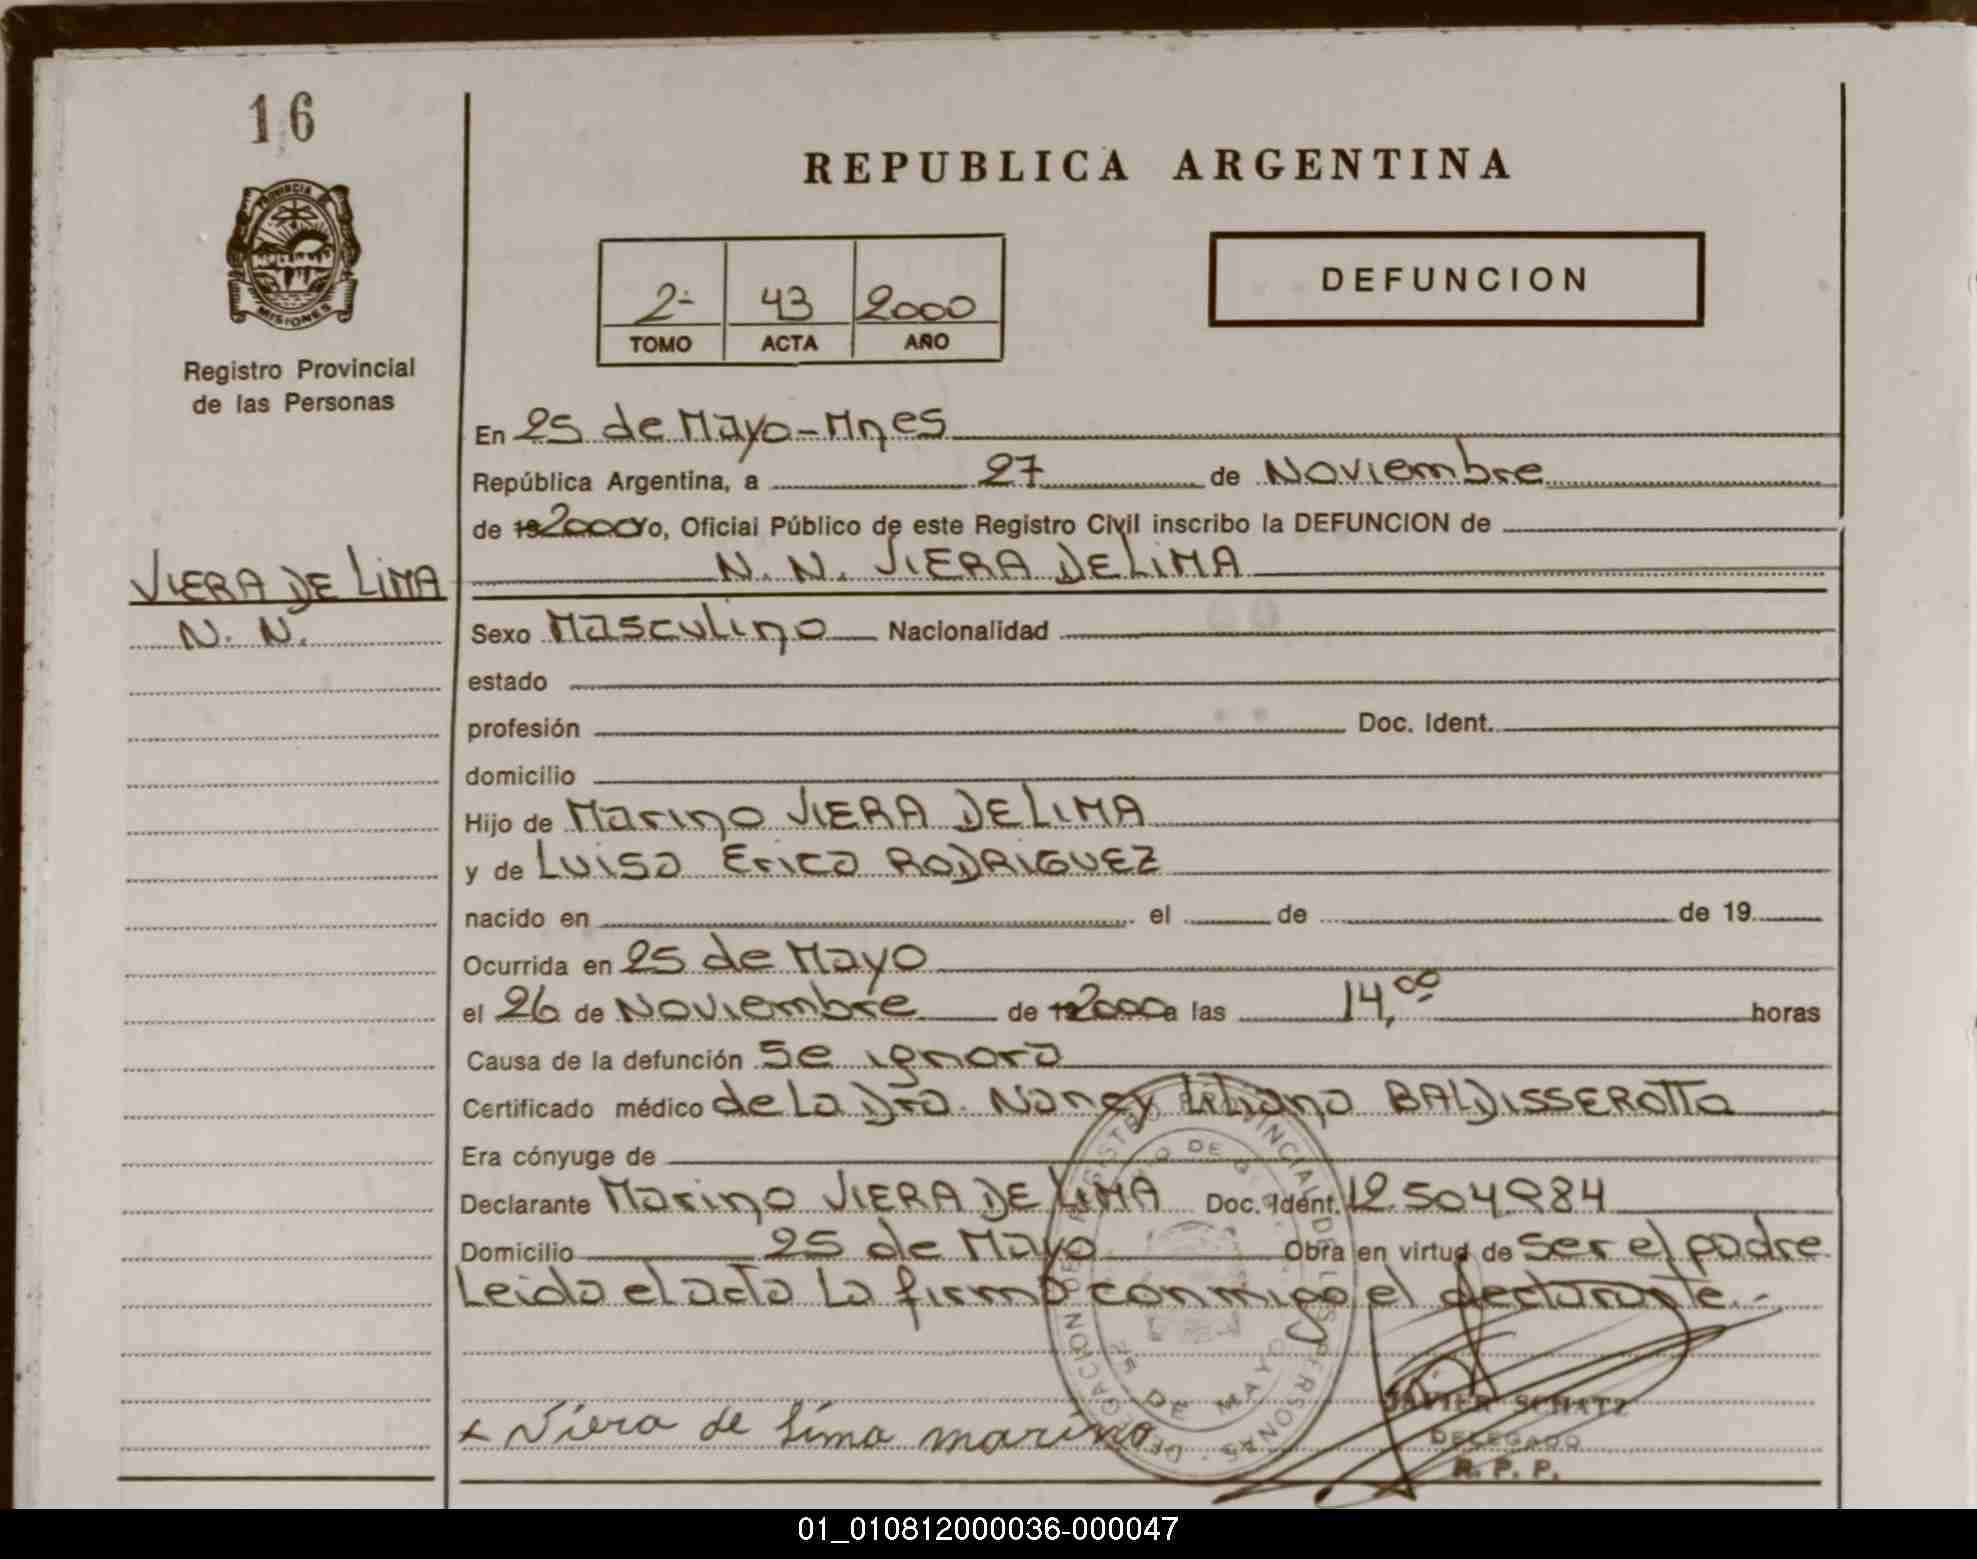 16
PROVINCIA
MISIONES
Registro Provincial
de las Personas
REPUBLICA ARGENTINA
2- 43 2000
TOMO ACTA AÑO
DEFUNCION
En 25 de Mayo-Mnes
República Argentina, a 27 de Noviembre
de 19 2000 Yo, Oficial Público de este Registro Civil inscribo la DEFUNCION de
N. N. VIERA DE LIMA
VIERA DE LIMA
N. N.
Sexo Masculino Nacionalidad
estado
profesión Doc. Ident.
domicilio
Hijo de Marino VIERA DE LIMA
y de Luisa Erica RODRIGUEZ
nacido en el de de 19
Ocurrida en 25 de Mayo
el 26 de Noviembre de 19 2000 a las 14,00 horas
Causa de la defunción Se ignora
Certificado médico de La Dra. Nancy Liliana BALDISSEROTTO
Era cónyuge de
Declarante Marino VIERA DE LIMA Doc. Ident. 12.504.984
Domicilio 25 de Mayo Obra en virtud de Ser el padre
Leida el acta La firma conmigo el declarante.-
x Viera de Lima marino
JAVIER SCHATZ
DELEGADO
R. P. P.
DELEGACION DEL REGISTRO PROVINCIAL DE LAS PERSONAS
25 DE MAYO
01_010812000036-000047